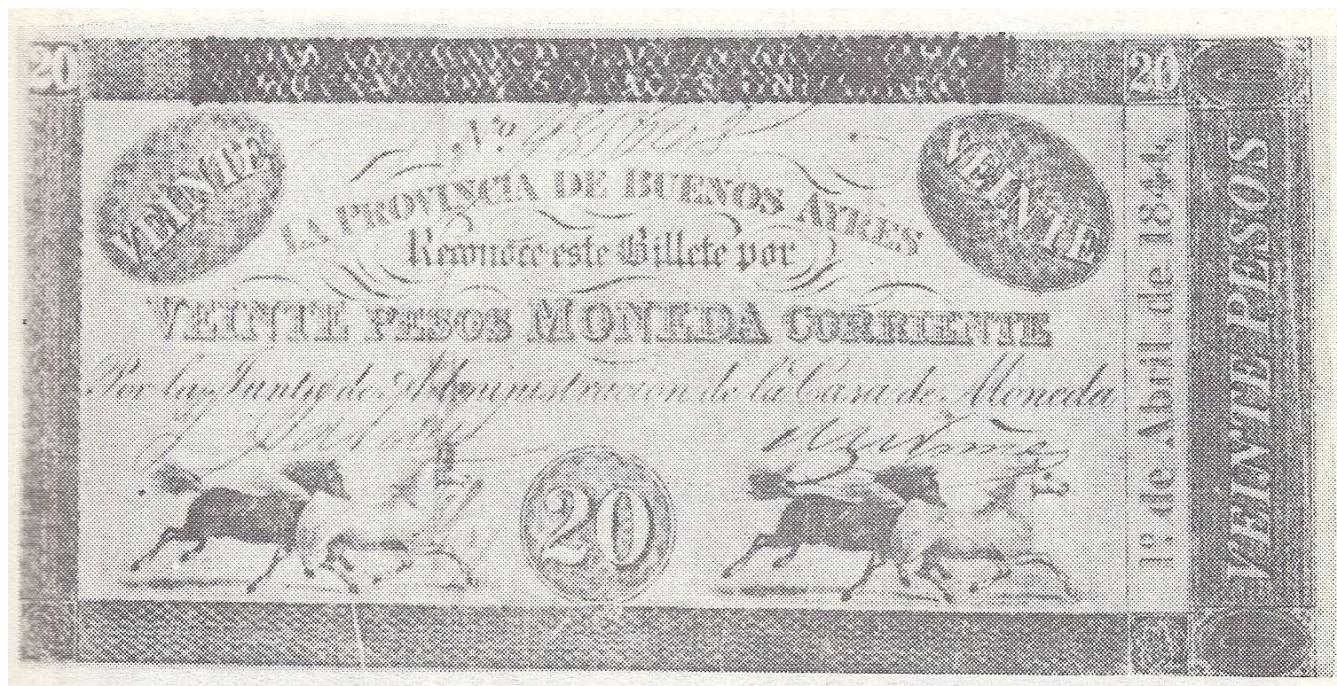 20
20
VEINTE
VEINTE
Nº
LA PROVINCIA DE BUENOS AYRES
Reconoce este Billete por
VEINTE PESOS MONEDA CORRIENTE
Por la Junta de Administracion de la Casa de Moneda
20
1º. de Abril de 1844.
VEINTE PESOS